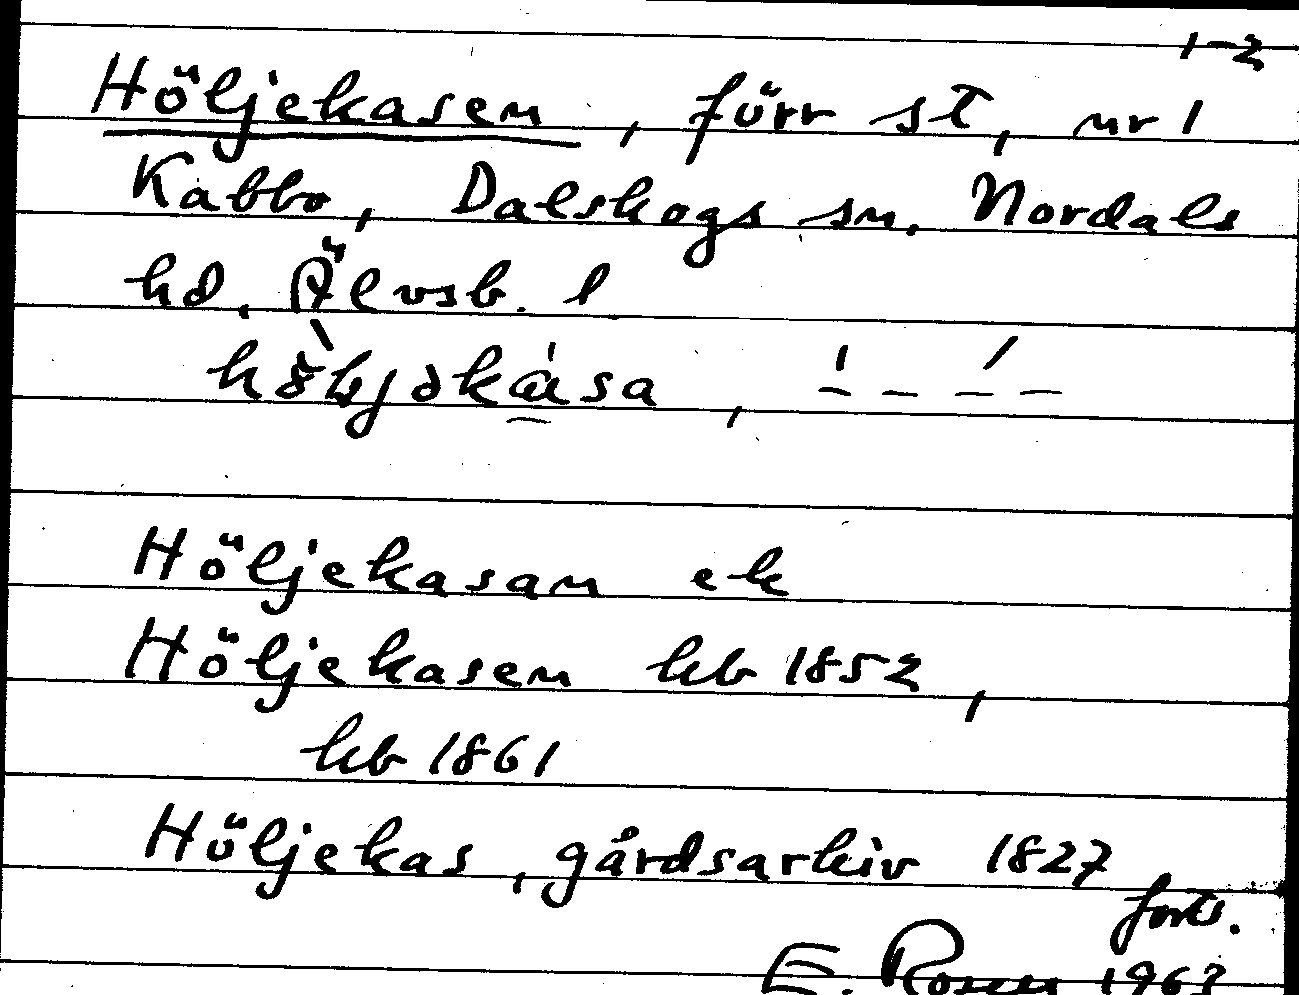 1-2
Höljekasen, förr st, nr 1
Kabbo, Dalskogs sn. Nordals
hd. Älvsb. l
Höljekasan ek
Höljekasen hb 1852,
hb 1861
Höljekas, gårdsarkiv 1827
forts.
E. Rosen